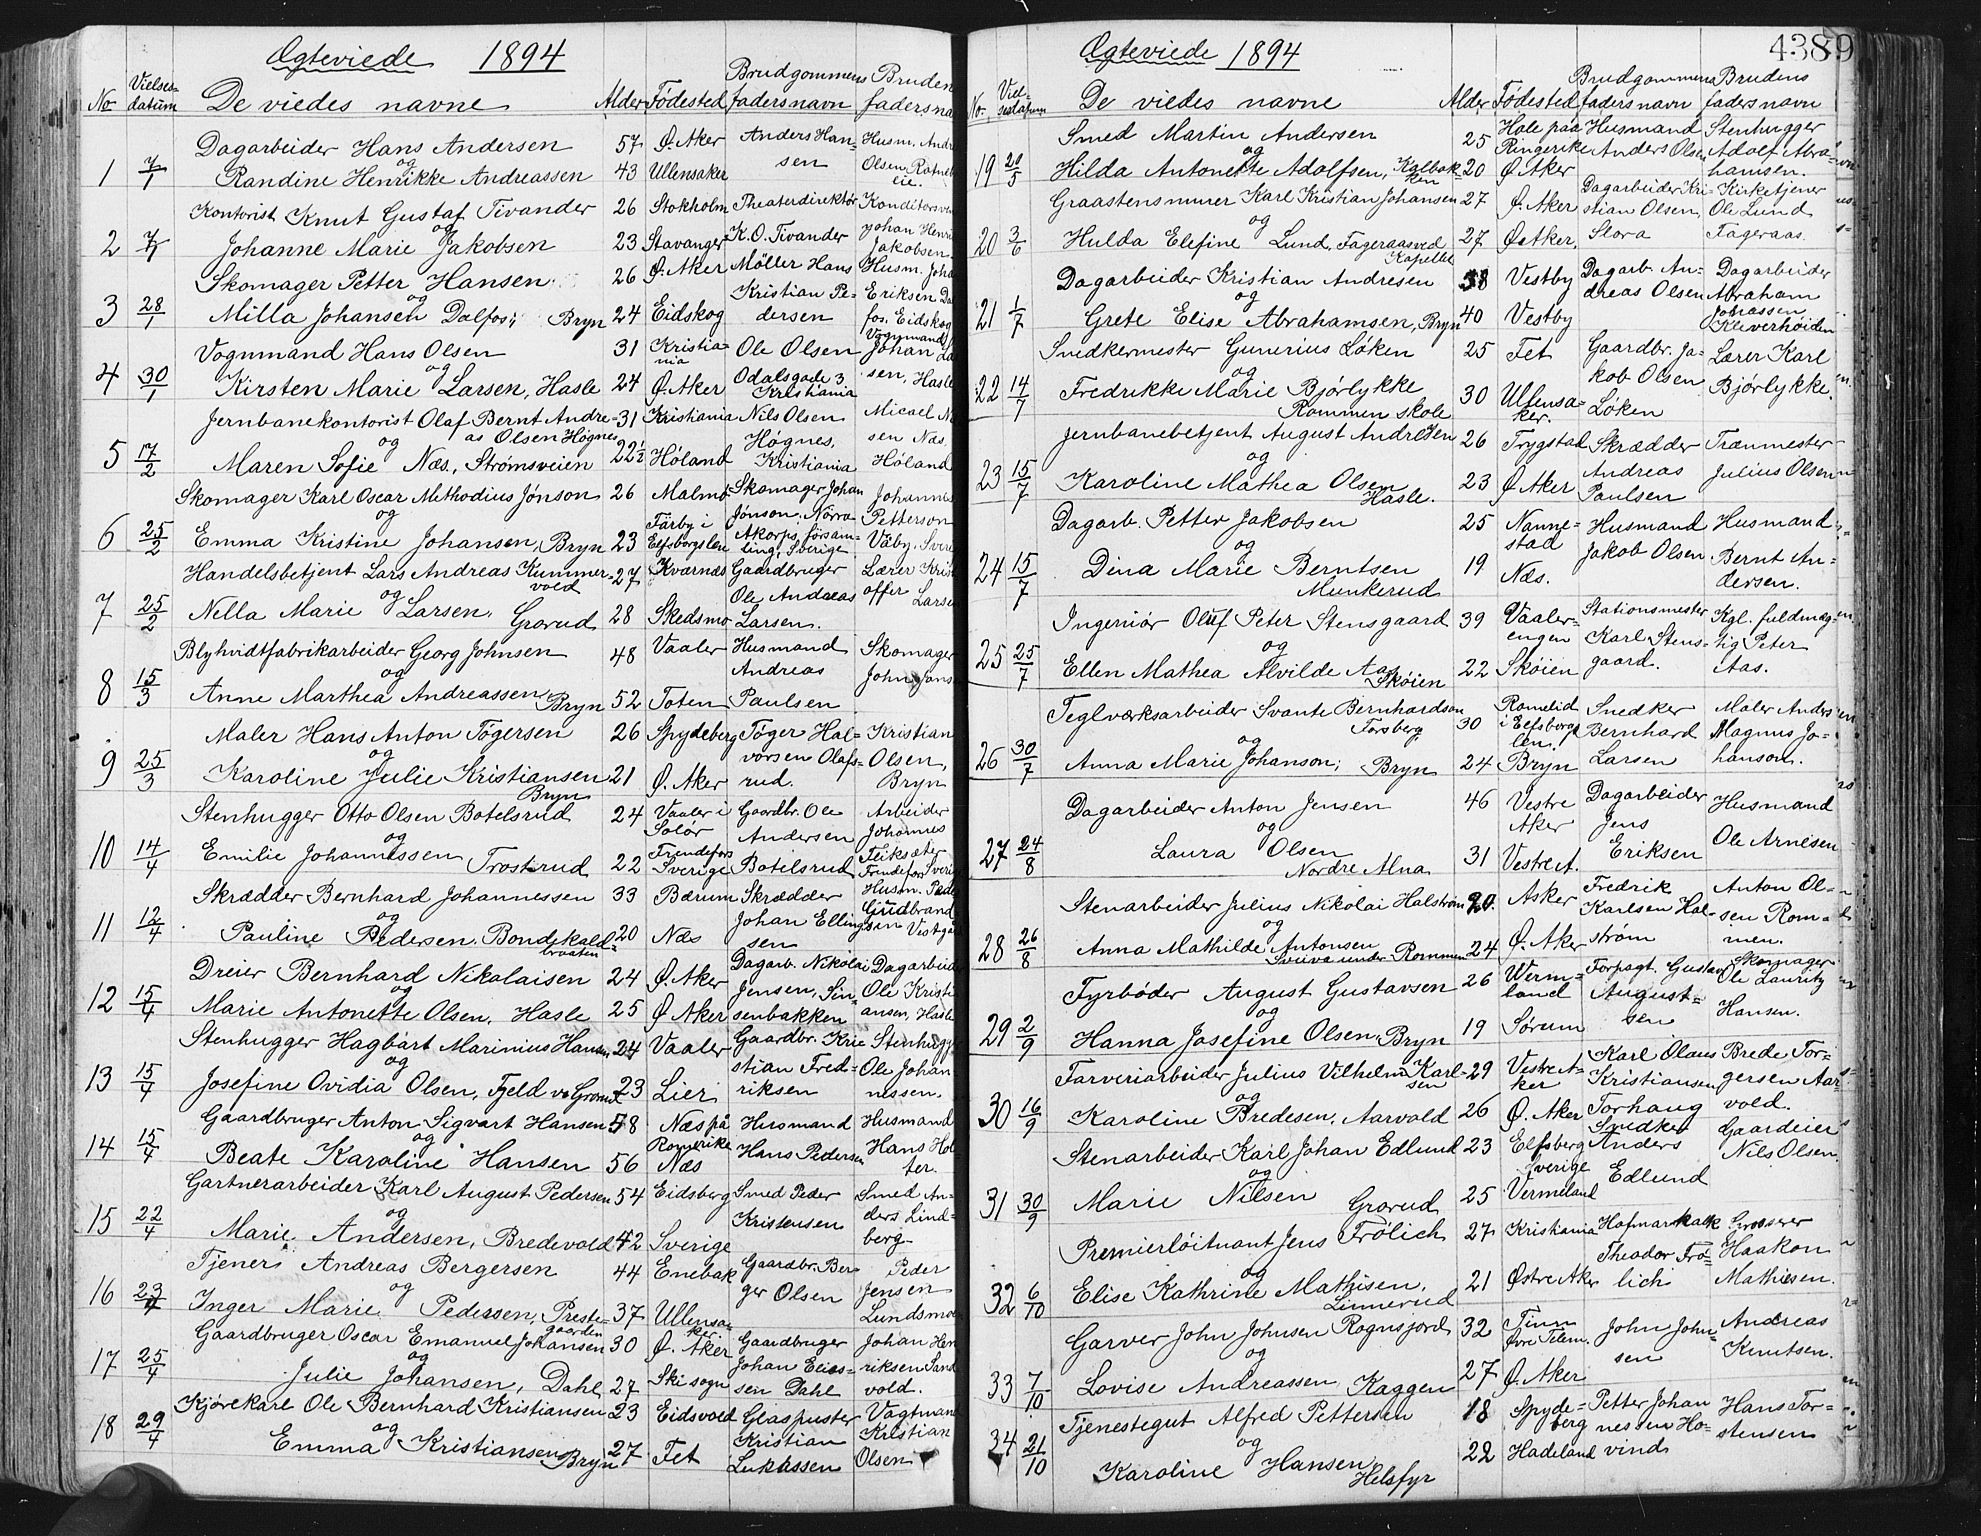 Ægteviede 1894
No Vielses-datum De viedes navne Alder Fødested Brudgommens fadersnavn Bruden fadersna
Dagarbeider Hans Andersen 57 Ø. Aker Anders Han- Husm. Andr
og sen Olsen
1 7/1 Randine Henrikke Andreassen 43 Ullensaker
Kontorist Knut Gustaf Tivander 26 Stokholm Theaterdirektør Konditorsven
og K.O. Tivander Johan Henri
2 7/1 Johanne Marie Jakobsen 23 Stavanger Jakobsen
Skomager Petter Hansen 26 Ø. Aker Møller Hans Husm. Joha
og Kristian Pe- Eriksen Da
3 28/1 Milla Johansen Dalfos; Bryn 24 Eidskog dersen fos, Eidskog
Vognmand Hans Olsen 31 Kristia-nia Ole Olsen Vognmand Johan La
og Odalsgade 3 sen, Hasle
4 30/1 Kirsten Marie Larsen, Hasle 24 Ø. Aker Kristiania
Jernbanekontorist Olaf Bernt Andre- 31 Kristiania Nils Olsen Micael N
as Olsen Høgnes Høgnes, sen Næs.
og
5 17/2 Maren Sofie Næs, Strømsveien 22½ Høland Kristiania Høland
Skomager Karl Oscar Methodius Jønson 26 Malmø Skomager Johan Johannes
og Jønson. Nörra Petterson
6 25/2 Emma Kristine Johansen, Bryn 23 Färby i Elfsborgslen Akorps försam-ling, Sverige Väby. Sveri
Handelsbetjent Lars Andreas Kummer-vold 27 Kværnæs Gaardbruger Lærer Krist
og Ole Andreas offer Larsen
7 25/2 Nella Marie Larsen. Grorud 28 Skedsmo Larsen.
Blyhvidtfabrikarbeider Georg Johnsen 48 Vaaler Husmand Skomager
og Andreas John Jons
8 15/3 Anne Marthea Andreassen, Bryn 52 Toten Paulsen
Maler Hans Anton Tøgersen 26 Spydeberg Tøger Hal- Kristian
og vorsen Olafs- Olsen,
9 25/3 Karoline Julie Kristiansen Bryn 21 Ø. Aker rud. Bryn
Stenhugger Otto Olsen Botelsrud 24 Vaaler i Solør Gaardbr. Ole Arbeider
og Andersen Johannes
10 14/4 Emilie Johannessen Trostrud 22 Frendefors Sverige Botilsrud Fliksæter Frendefors Sverig
Skrædder Bernhard Johannessen 33 Bærum Skrædder Husm. Peder
og Johan Elling- Gudbrand-
11 12/4 Pauline Pedersen. Bondekald-braaten 20 Næs sen sen Vestg
Dreier Bernhard Nikolaisen 24 Ø. Aker Dagarb. Nikolai Dagarbeider
og Jensen, Sin- Ole Kristi
12 15/4 Marie Antonette Olsen, Hasle 25 Ø Aker senbakken ansen, Hasle
Stenhugger Hagbart Marinius Hansen 24 Vaaler Gaardbr. Kri Stenhugger
og stian Fred- Ole Johan-
13 15/4 Josefine Ovidia Olsen, Fjeld v. Grorud 23 Lier riksen nessen.
Gaardbruger Anton Sigvart Hansen 58 Næs på Romerike Husmand Husmand
og
14 15/4 Beate Karoline Hansen 56 Næs Hans Pedersen Hans Hol-ter.
Gartnerarbeider Karl August Pedersen 54 Eidsberg Smed Peder Smed An-
og Kristensen ders Lind-
15 22/4 Marie Andersen, Bredevold 42 Sverige berg
Tjener Andreas Bergersen 44 Enebak Gaardbr. Ber Peder
og ger Olsen Jensen
16 23/4 Inger Marie Pedersen, Preste-gaarden 37 Ullensa-ker. Lundsmoen
Gaardbruger Oscar Emanuel Johansen 30 Ø. Aker Gaardbruger Johan Hen
og Johan Elias- riksen Sand
17 25/4 Julie Johansen, Dahl 27 Ski sogn sen Dahl vold.
Kjørekarl Ole Bernhard Kristiansen 23 Eidsvold Glaspuster Vagtmand
og Kristian Kristian
18 29/4 Emma Kristiansen Bryn 27 Fet Lukassen Olsen
Ægteviede 1894 4389
No. Viel-sesdatum De viedes navne Alder Fødested Brudgommens fadersnavn Brudens fadersnavn
Smed Martin Andersen 25 Hole paa Ringerike Husmand Anders Olsen Stenhugger
og Adolf Abra-
19 20/5 Hilda Antonette Adolfsen, Kalbak-ken 20 Ø Aker hamsen.
Graastensmurer Karl Kristian Johansen 27 Ø. Aker Dagarbeider Kri- Kirketjener
og stian Olsen, Ole Lund
20 3/6 Hulda Elefine Lund, Fageraasved Kapellet 27 Ø. Aker, Stora Fageraas.
Dagarbeider Kristian Andresen 38 Vestby Dagarb. An- Dagarbeider
og dreas Olsen Abraham
21 1/7 Grete Elise Abrahamsen, Bryn 40 Vestby Johassen Kleverhøiden
Snedkermester Gunerius Løken 25 Fet Gaardbr. Ja- Lærer Karl
og kob Olsen Bjørlykke.
22 14/7 Fredrikke Marie Bjørlykke 30 Ullensa-ker. Løken
Rommen skole
Jernbanebetjent August Andresen 26 Trygstad Skrædder Trænmester
og Andreas Julius Olsen
23 15/7 Karoline Mathea Olsen Hasle. 23 Ø Aker Paulsen
Dagarb. Petter Jakobsen 25 Nanne-stad Husmand Husmand
og Jakob Olsen Bernt An-
24 15/7 Dina Marie Berntsen 19 Næs. dersen.
Munkerud
Ingeniør Oluf Peter Stensgaard 39 Vaaler-engen Stationsmester Kgl. fuldmæg-
og Karl Stens- tig Peter
25 25/7 Ellen Mathea Alvilde Aas Skøien 22 Skøien gaard. Aas.
Teglværksarbeider Svante Bernhardson Forsberg 30 Romelid i Elfsborgs len! Snedker Maler Anders
og Bernhard Magnus Jo-
26 30/7 Anna Marie Johanson; Bryn 24 Bryn Larsen hanson.
Dagarbeider Anton Jensen 46 Vestre Aker Dagarbeider Husmand
og Jens Ole Arnesen
27 24/8 Laura Olsen 31 Vestre A. Eriksen
Nordre Alna
Stenarbeider Julius Nikolai Halstrøm 20. Asker Fredrik Anton Ol-
og Karlsen Hal- sen Rom-
28 26/8 Anna Mathilde Antonsen 24 Ø. Aker strøm men.
Sviva under Rommen
Fyrbøder August Gustavsen 26 Werm-land Forpagt. Gustav Skomager Ole Lauritz
og August- Hansen.
29 2/9 Hanna Josefine Olsen, Bryn 19 Sørum sen
Farveriarbeider Julius Vilhelm Karl-sen 29 Vestre A-ker Karl Olaus Brede Tor-
og Kristiansen gersen Aar-
30 16/9 Karoline Bredesen, Aarvold 26 Ø. Aker Torhaug vold.
Stenarbeider Karl Johan Edlund 23 Elfsberg Sverige Snedker Anders Gaardeier
og Edlund Nils Olsen.
31 30/9 Marie Nilsen Grorud 25 Vermeland
Premierløitnant Jens Frölich 27 Kristiania Hofmarskalk Grosserer
og Theodor Frö- Haakon
32 6/10 Elise Kathrine Mathisen, 21 Østre Aker lich Mathiesen.
Linnerud
Garver John Johnsen Rognsjord 32 Tinn Øvre Telem. John John- Andreas
og sen Knutsen.
33 7/10 Lovise Andreassen Kaggen 27 Ø. Aker
Tjenestegut Alfred Pettersen 18 Spyde-berg Petter Johan Hans Tor-
og nessen Ho- stensen
34 21/10 Karoline Hansen 22 Hadeland vind
Helsfyr